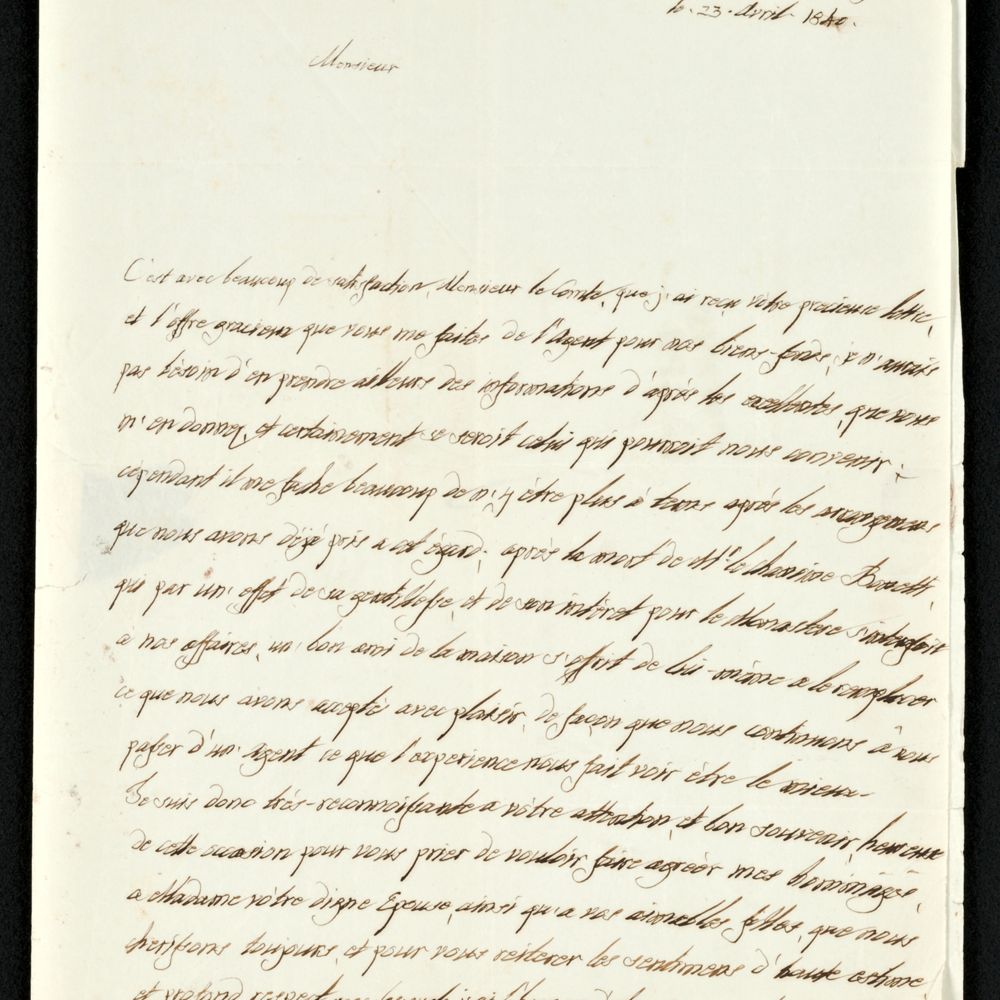 le 23. Avril 1840.
Monsieur
C'est avec beaucoup de satisfaction, Monsieur le Comte, que j'ai reçu vôtre precieuse lettre,
et l'offre gracieux que vous me faites de l'Agent pour nos biens-fonds; je n'aurais
pas besoin d'en prendre ailleurs des informations d'aprés les excellentes, que vous
m'en donnez, et certainement ce seroit celui qui pourroit nous convenir;
cependant il me fache beaucoup de n'y être plus à tems aprés les arrangemens
que nous avons déjà pris a cet égard; aprés la mort de Mr. le Chanoine
qui par un' effet de sa gentillesse, et de son intéret pour le Monastere
a nos affaires, un' bon ami de la maison s'offrit de lui-même a le remplacer
ce que nous avons accepté avec plaisir, de façon que nous continuons â nous
passer d'un' agent ce que l'experience nous fait voir être le mieux-
Je suis donc trés-reconnoissante a vôtre attention, et bon souvenir, heureuse
de cette occasion pour vous prier de vouloir faire agréér mes hommages,
a Madame vôtre digne Epouse, ainsi qu'a vos aimables filles, que nous
cherissons toujours et pour vous reiterer les sentimens d'haute estime,
et profond respect